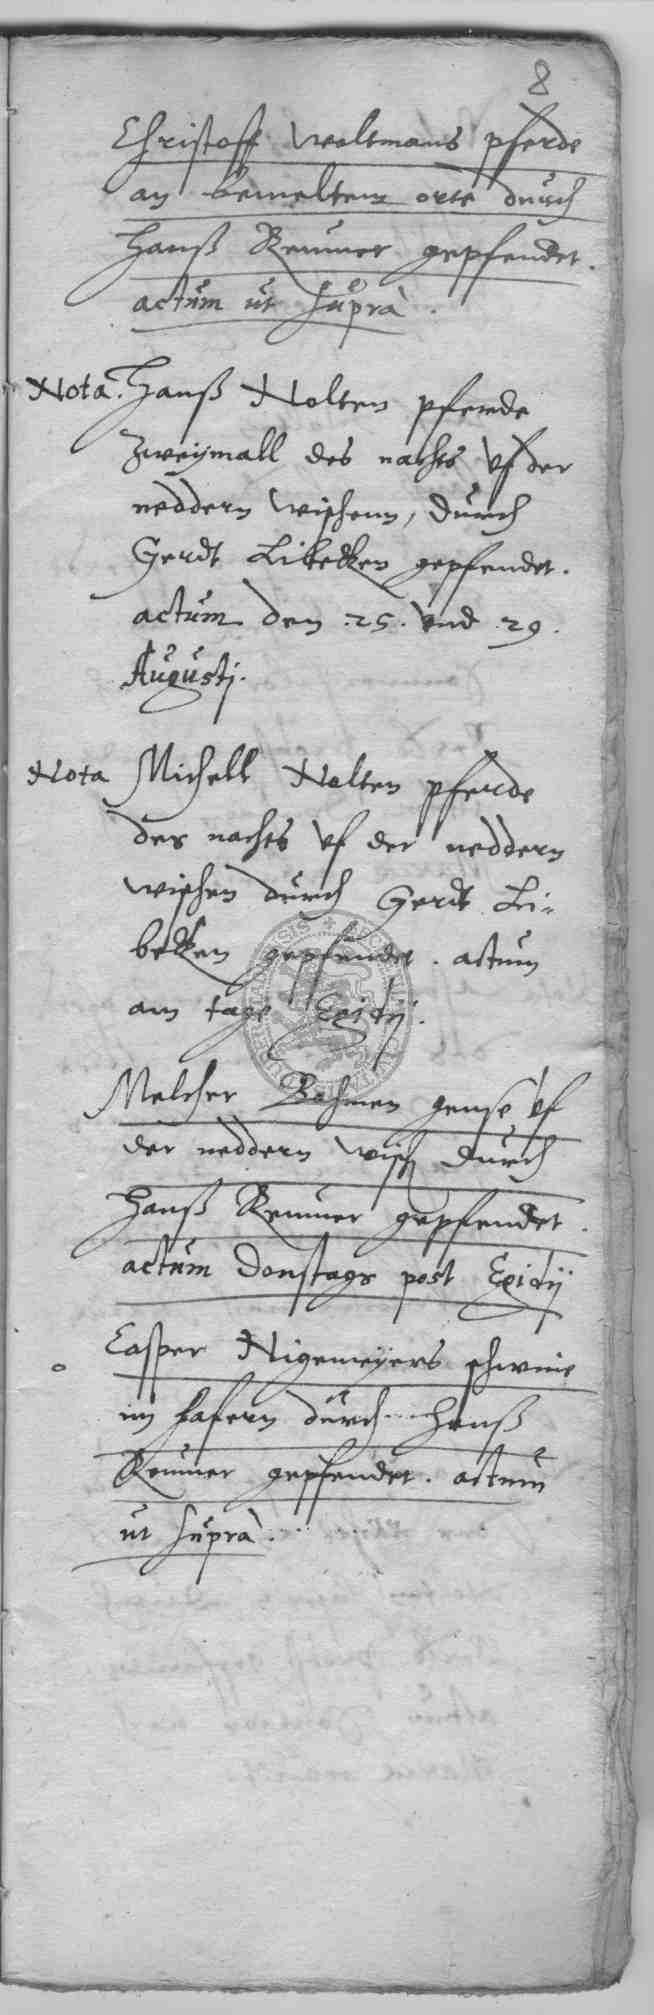 8
Christoff Woltmans pferde
an bemeltem orte durch
Hanß Remmer gepfendet.
actum ut suprà.
Nota. Hanß Nolten pferde
zweymall des nachts vf der
neddern wischenn, durch
Gerdt Libecken gepfendet.
actum den .25. vnd .29.
Augustj.
Nota Michell Nolten pferde
des nachts vf der neddern
wischen durch Gerdt Li-
becken gepfendet. actum
am tage Egidij.
Melcher Bohmen gense vf
der neddern wisch durch
Hanß Remmer gepfendet.
actum Donstags post Egidij
Casper Nigemeyers schwine
im hafern durch Hanß
Remmer gepfendet. actum
ut suprà.